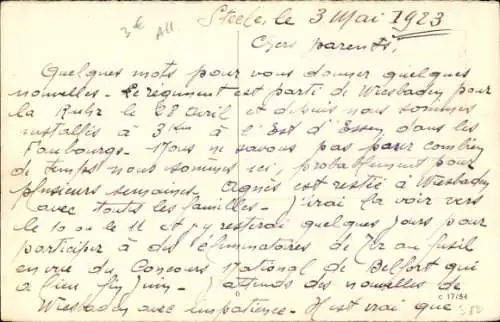 3€ All
Steele, le 3 Mai 1923
Chers parents,
Quelques mots pour vous donner quelques
nouvelles - Le régiment est parti de Wiesbaden pour
la Ruhr le 28 Avril et depuis nous sommes
installés à 3 Km à l'Est d'Essen dans les
Faubourgs - Nous ne savons pas pour combien
de temps nous sommes ici, probablement pour
plusieurs semaines. Agnès est restée à Wiesbaden
avec toutes les familles - J'irai la voir vers
le 10 ou le 11 et j'y resterai quelques jours pour
participer à des éliminatoires de Tir au fusil
en vue du Concours National de Belfort qui
a lieu fin Juin - J'attends des nouvelles de
Wiesbaden avec impatience - Il est vrai que
C 17/54